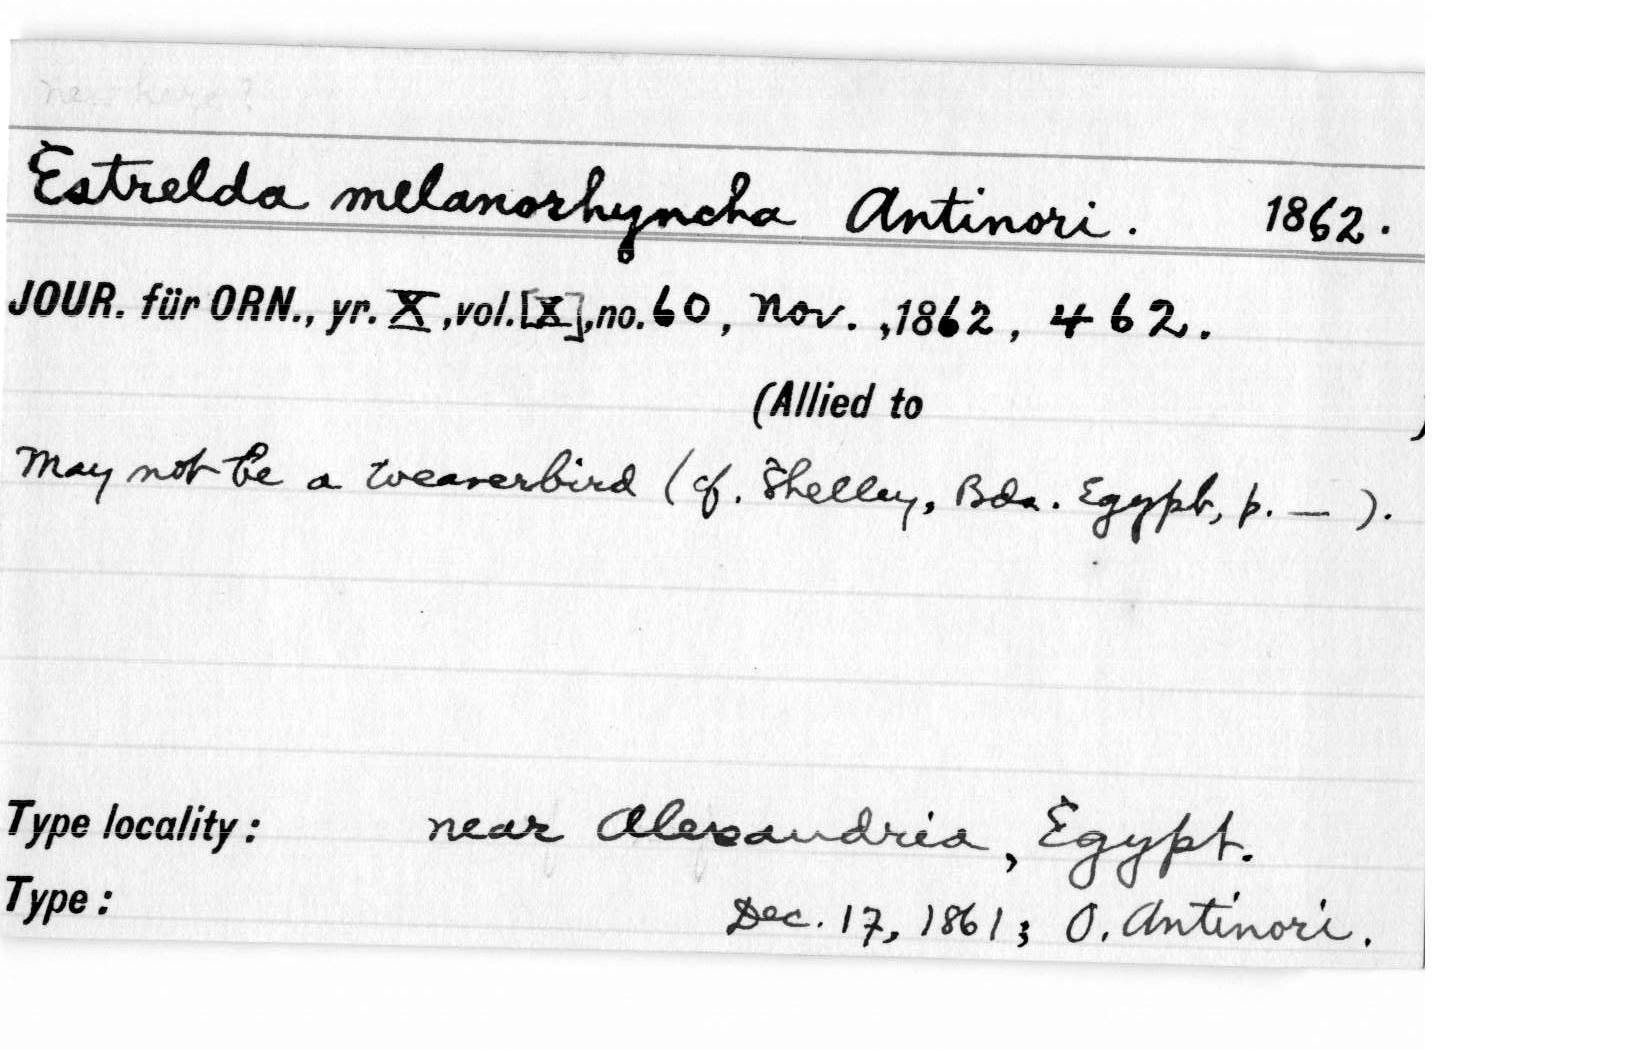 Estrelda melanorhyncha Antinori. 1862.
JOUR. für ORN., yr. X, vol. [X], no. 60, Nov., 1862, 462.
(Allied to )
May not be a weaverbird (cf. Shelley, Bds. Egypt, p. — ).
Type locality: near Alexandria, Egypt.
Type: Dec. 17, 1861; O. Antinori.